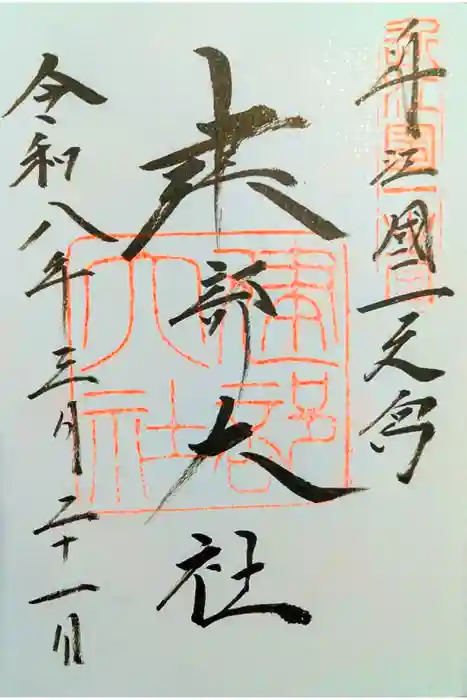 近江國一之宮
建部大社
令和八年三月二十一日
建部
大社